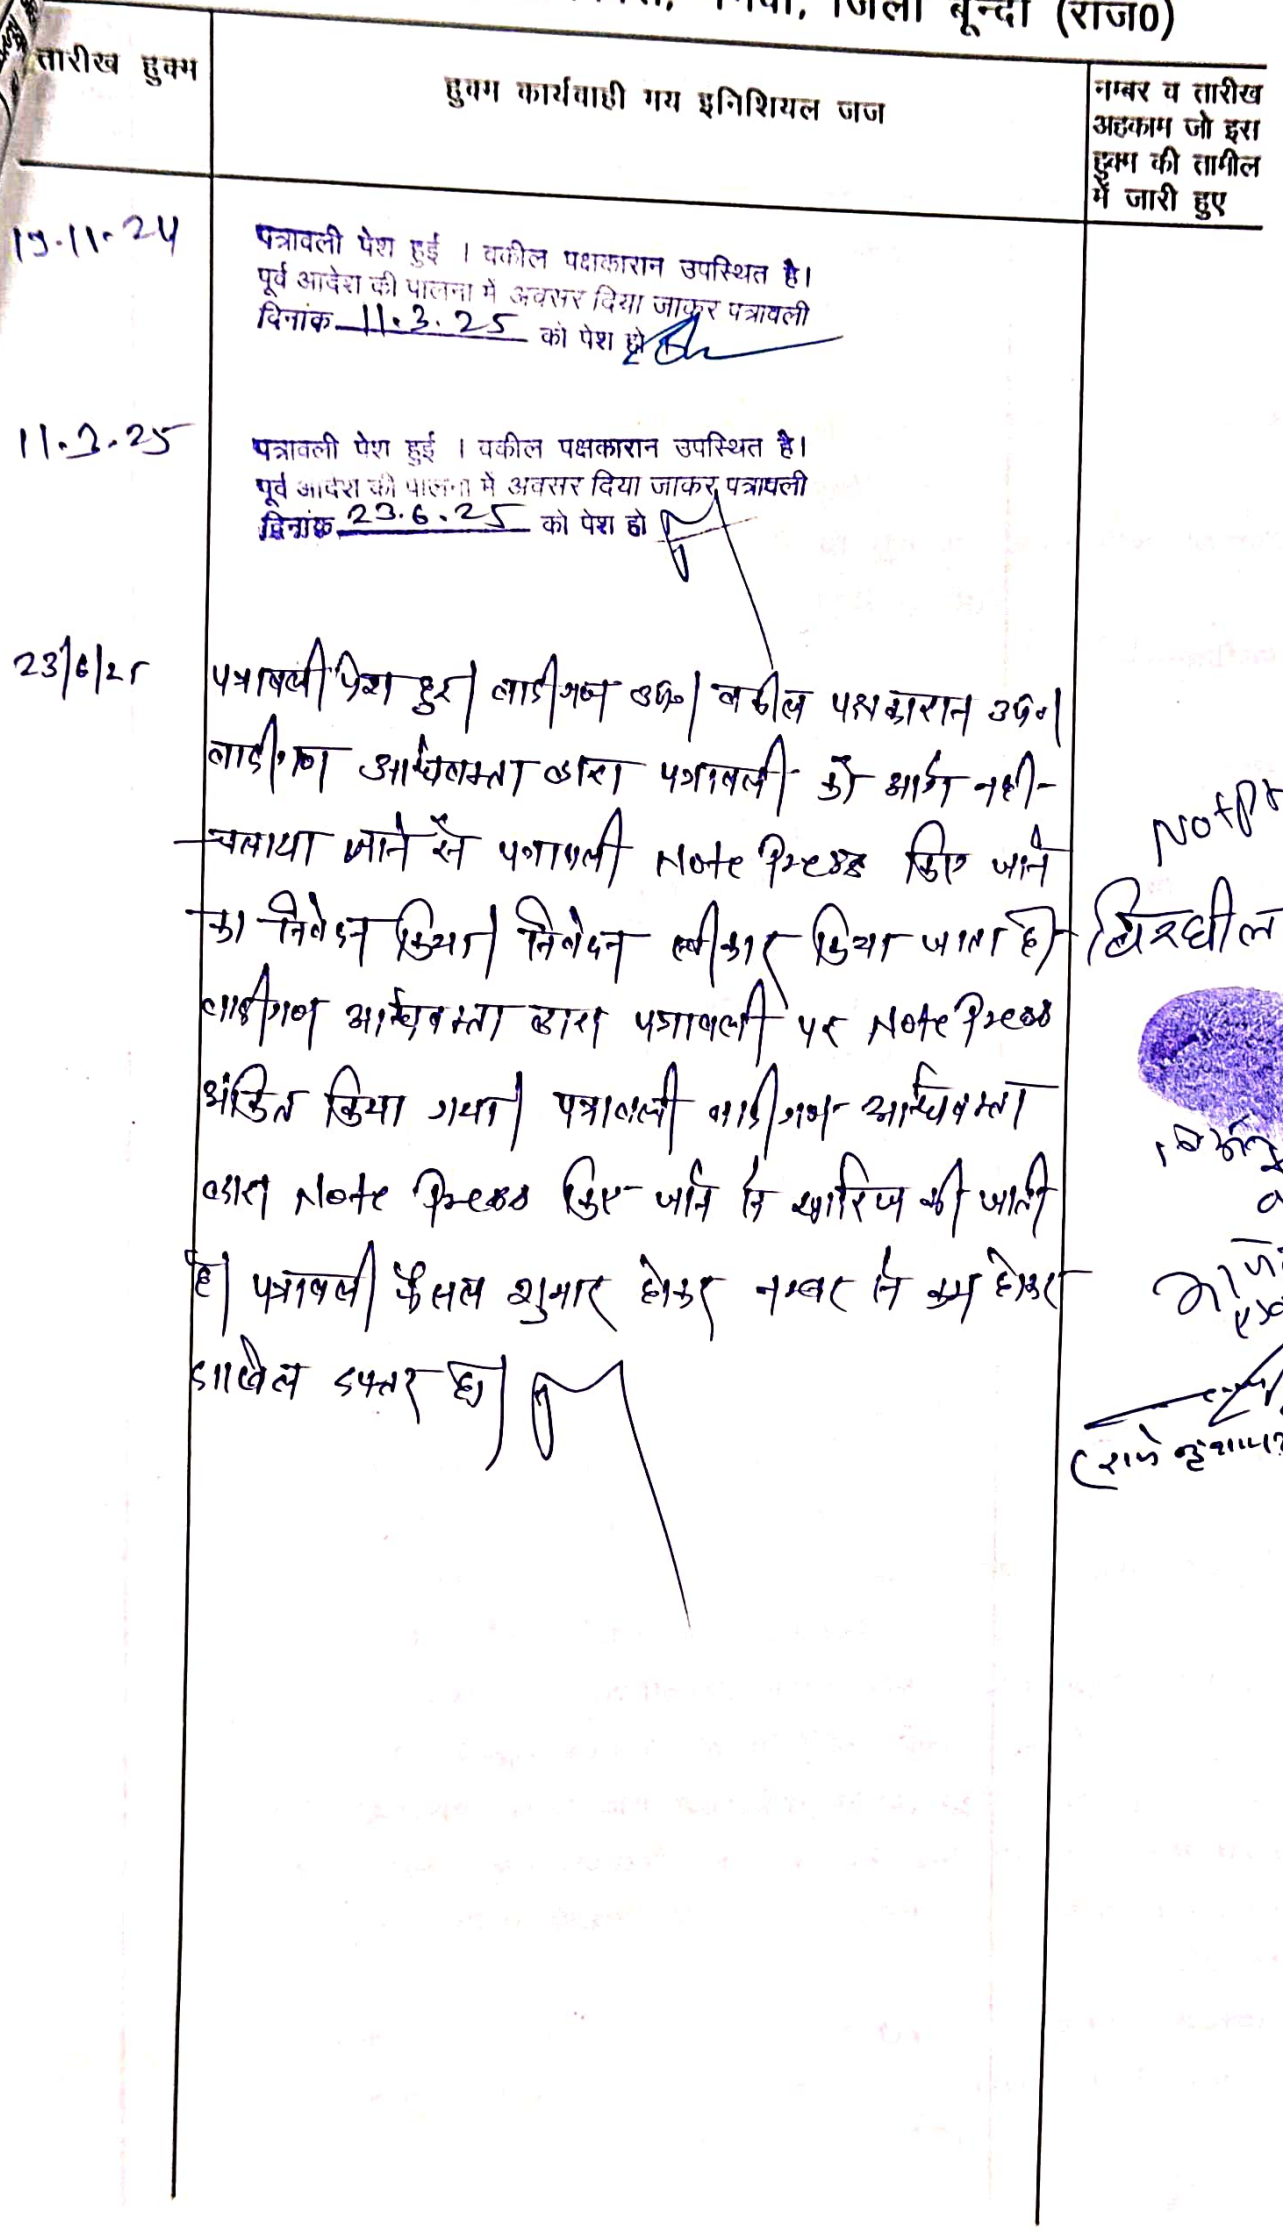 जिला बून्दी (राज0)
तारीख हुक्म
हुक्म कार्यवाही मय इनिशियल जज
नम्बर व तारीख
अहकाम जो इस
हुक्म की तामील
में जारी हुए
19.11.24
पत्रावली पेश हुई । वकील पक्षकारान उपस्थित है।
पूर्व आदेश की पालना में अवसर दिया जाकर पत्रावली
दिनांक 11.3.25 को पेश हो
11.3.25
पत्रावली पेश हुई । वकील पक्षकारान उपस्थित है।
पूर्व आदेश की पालना में अवसर दिया जाकर पत्रावली
दिनांक 23.6.25 को पेश हो
23/6/25
पत्रावली पेश हुई। वादीगण उप०। वकील पक्षकारान उप०।
वादीगण अधिवक्ता द्वारा पत्रावली को आगे नही
चलाया जाने से पत्रावली Note Press किए जाने
का निवेदन किया। निवेदन स्वीकार किया जाता है।
वादीगण अधिवक्ता द्वारा पत्रावली पर Note Press
अंकित किया गया। पत्रावली वादीगण अधिवक्ता
द्वारा Note Press किए जाने से खारिज की जाती
है। पत्रावली फैसल शुमार होकर नम्बर से कम होकर
दाखिल दफ्तर हो।
बिरधील